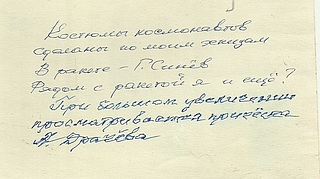 Костюмы космонавтов
сделаны по моим эскизам
В ракете - Г. Синёв
Рядом с ракетой я и ещё?
При большом увеличении
просматривается причёска
А. Драчёва